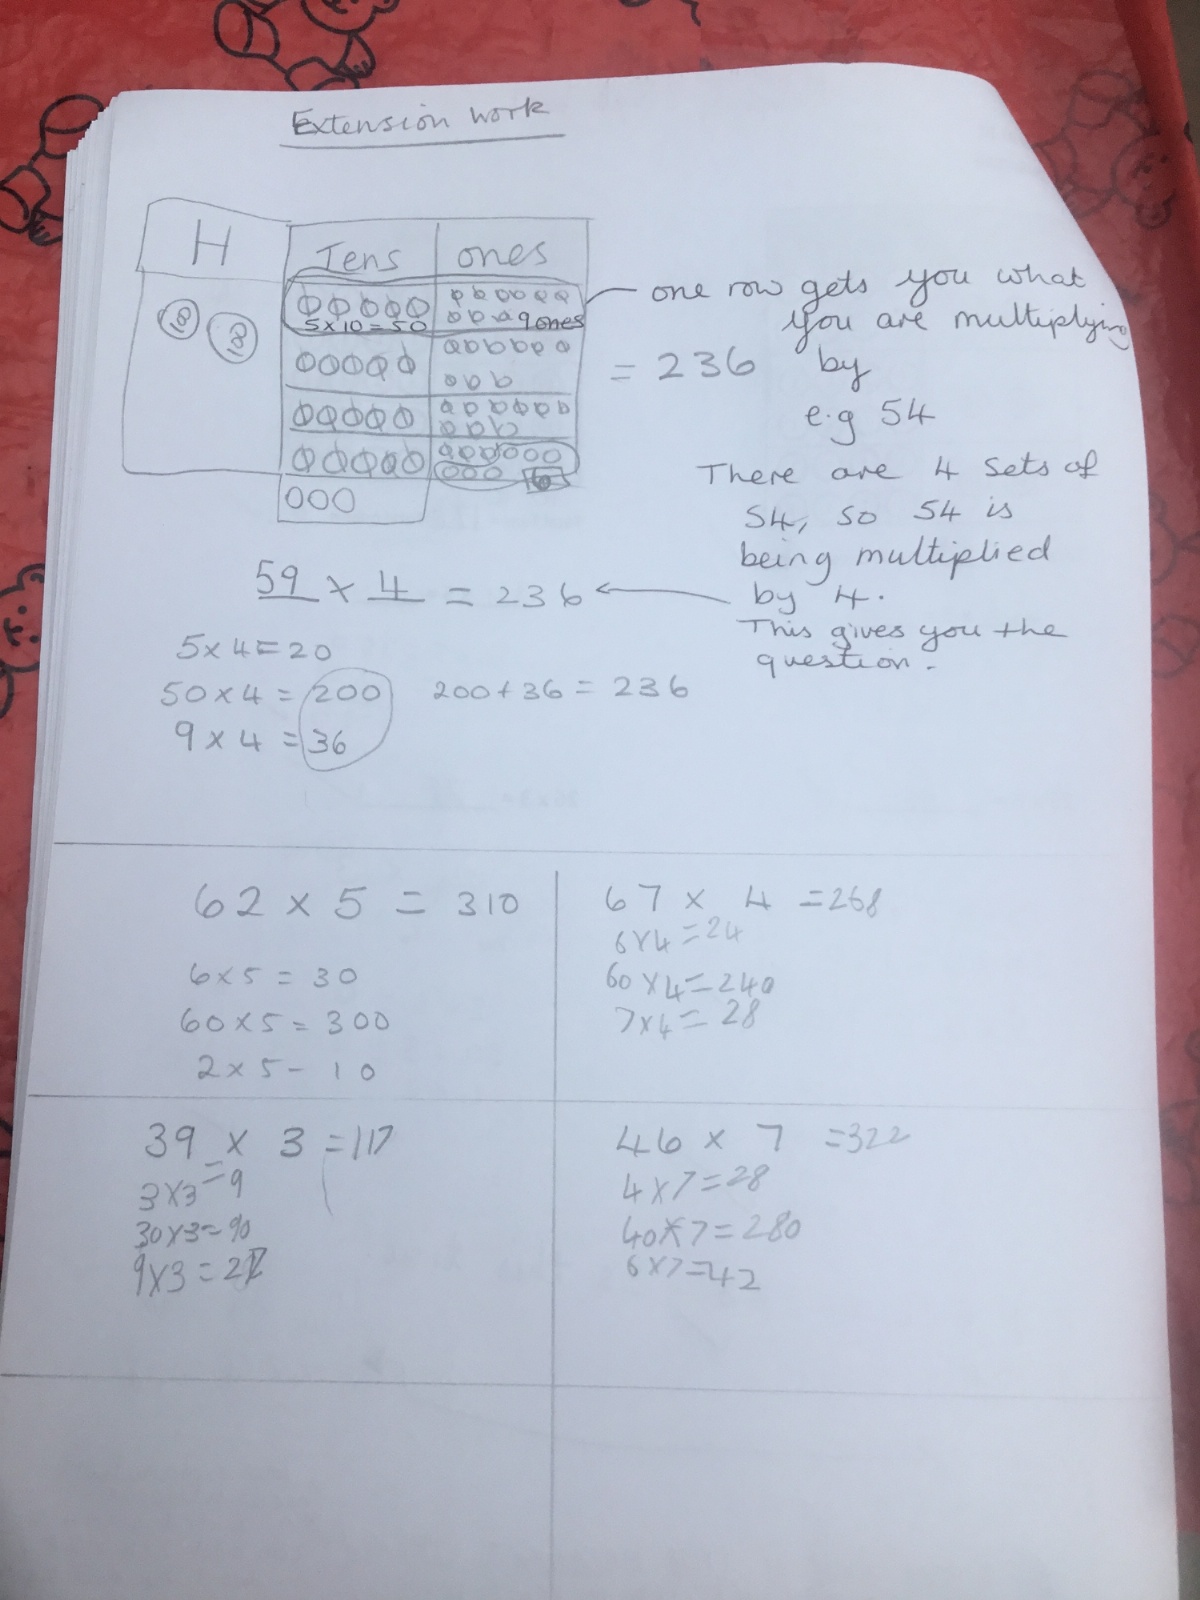 Extension work
H Tens ones
10 10
5x10=50 9 ones
6
one row gets you what
you are multiplying
= 236 by
e.g 54
There are 4 sets of
54, so 54 is
being multiplied
by 4.
This gives you the
question.
59 x 4 = 236
5x4=20
50x4 = 200 200+36 = 236
9 x 4 = 36
62 x 5 = 310
6x5 = 30
60x5 = 300
2x5- 10
67 x 4 =268
6x4=24
60x4=240
7x4= 28
39 x 3 =117
3x3=9
30x3=90
9x3=27
46 x 7 =322
4x7=28
40x7=280
6x7=42